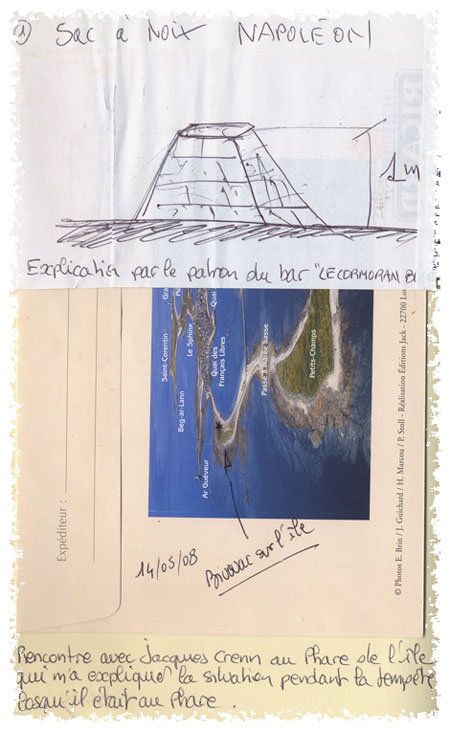 ① Sac à Noix NAPOLÉON
1m
Explication par le patron du bar "LE CORMORAN
Saint-Corentin
Beg-ar-Lann
Le Sphinx
Quai des
Français Libres
Ar Guéveur
Petits-Champs
© Photos E. Brin / J. Guichard / H. Marcou / P. Stoll - Réalisation Editions Jack - 22700
Expéditeur :
14/05/08
Bivouac sur l'île
Rencontre avec Jacques Crenn au Phare de l'île
qui m'a expliquer la situation pendant la tempête
lorsqu'il était au Phare.